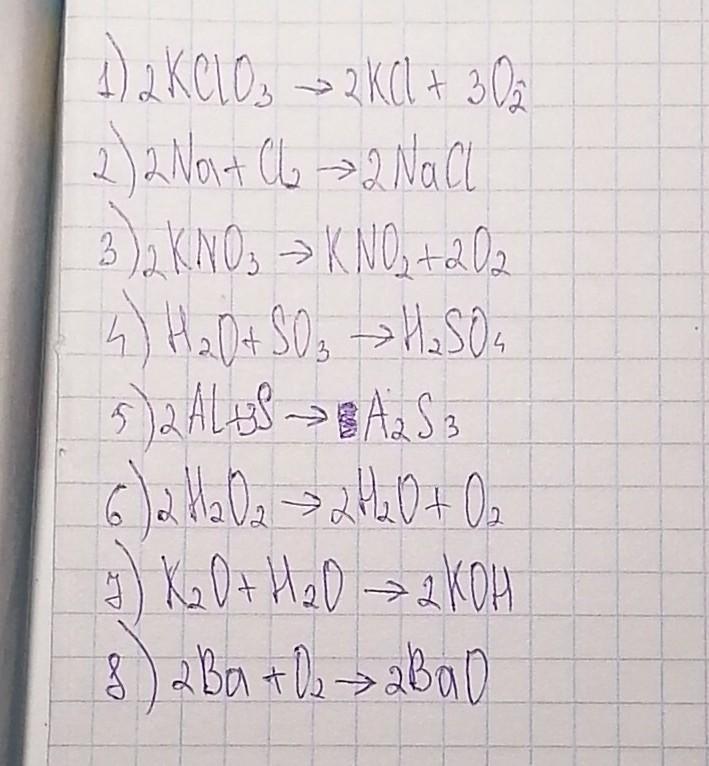 1) 2KClO₃ → 2KCl + 3O₂
2) 2Na + Cl₂ → 2NaCl
3) 2KNO₃ → KNO₂ + 2O₂
4) H₂O + SO₃ → H₂SO₄
5) 2Al+3S → A₂S₃
6) 2H₂O₂ → 2H₂O + O₂
7) K₂O + H₂O → 2KOH
8) 2Ba + O₂ → 2BaO